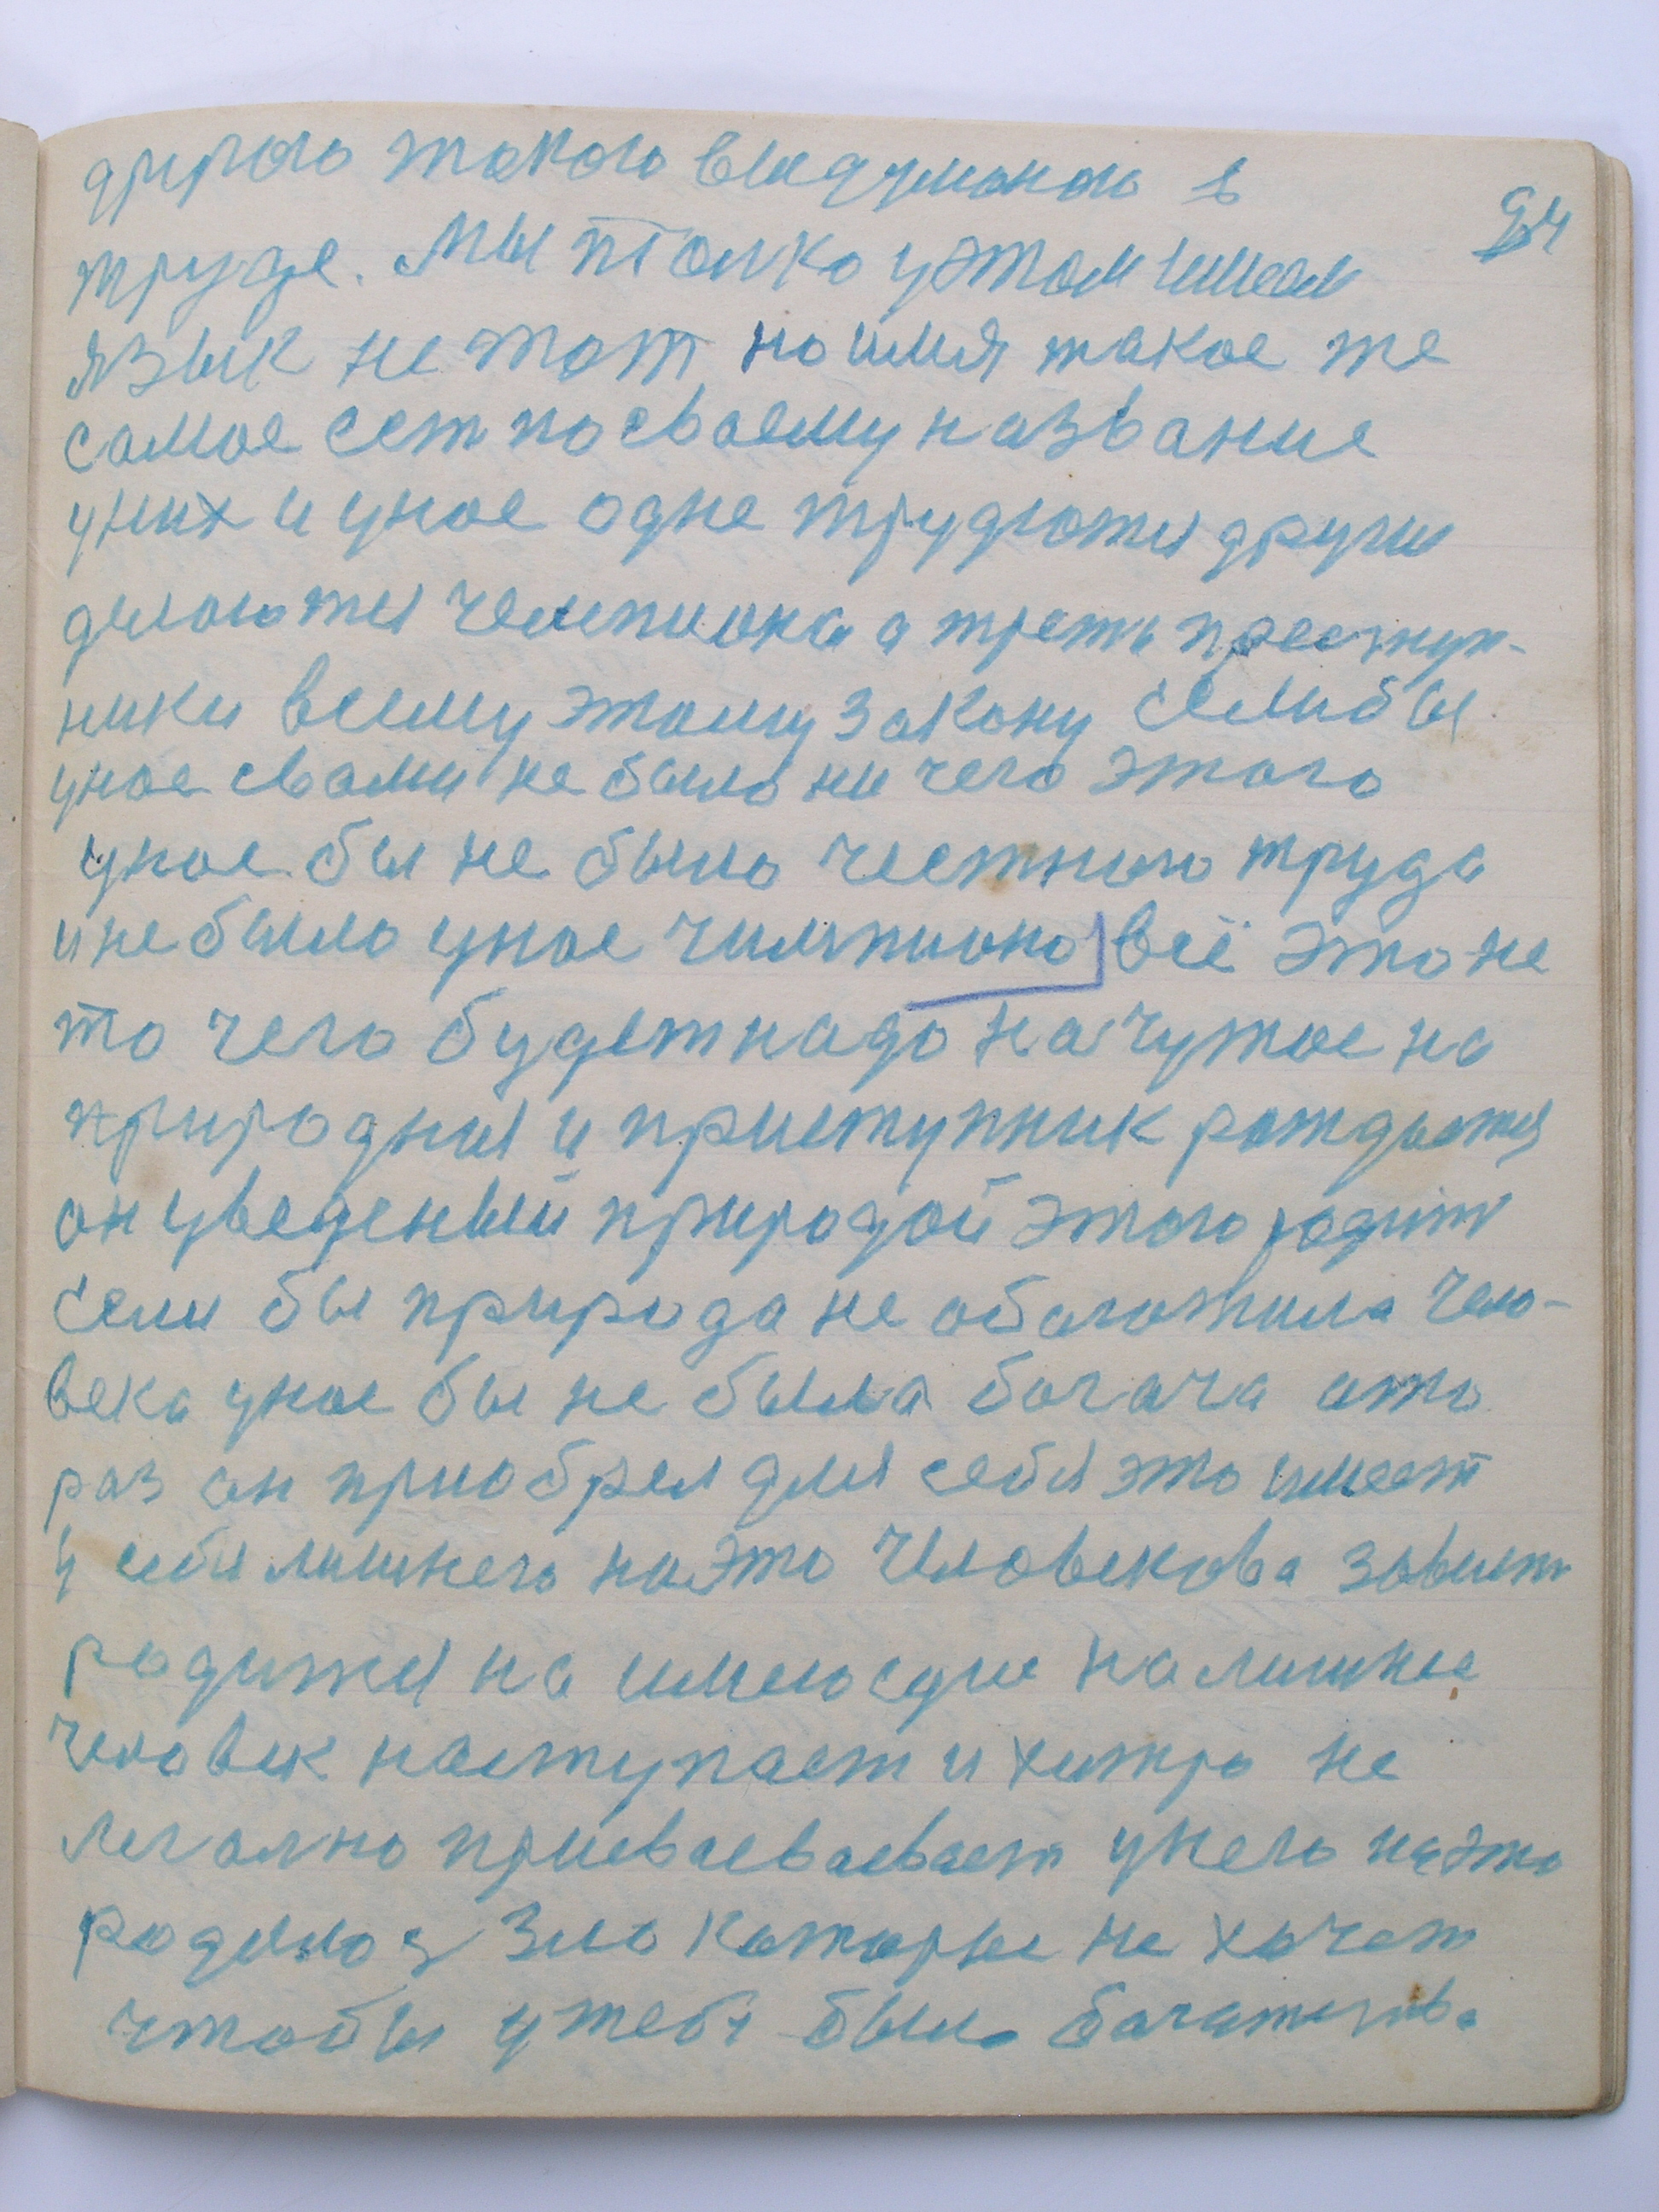 другого такого выдуманого в
94
труде. Мы птолко у этом имеем
язык не тот но имя такое же
самое сет по своему название
у них и унас одне трудютья други
делаютья чемпиона а трети преступ-
ники всиму этому закону Если бы
унас свами не было ни чего этого
унас бы не было честного труда
и не было унас чимпиона всё это не
то чего будет надо на чужое на
природныя и приступник рождается
он уведеный природой этого родит
Если бы природа не оболожила чело-
века унас бы не была богача ато
раз он приобрел для себя это имеет
у себя лишнего на это человекова зависть
родитья на имеюсдие на лишнее
человек наступает и хитро не
легално присваевавает у него на это
родилоз Зло которые не хочет
чтобы у тебя было богатство